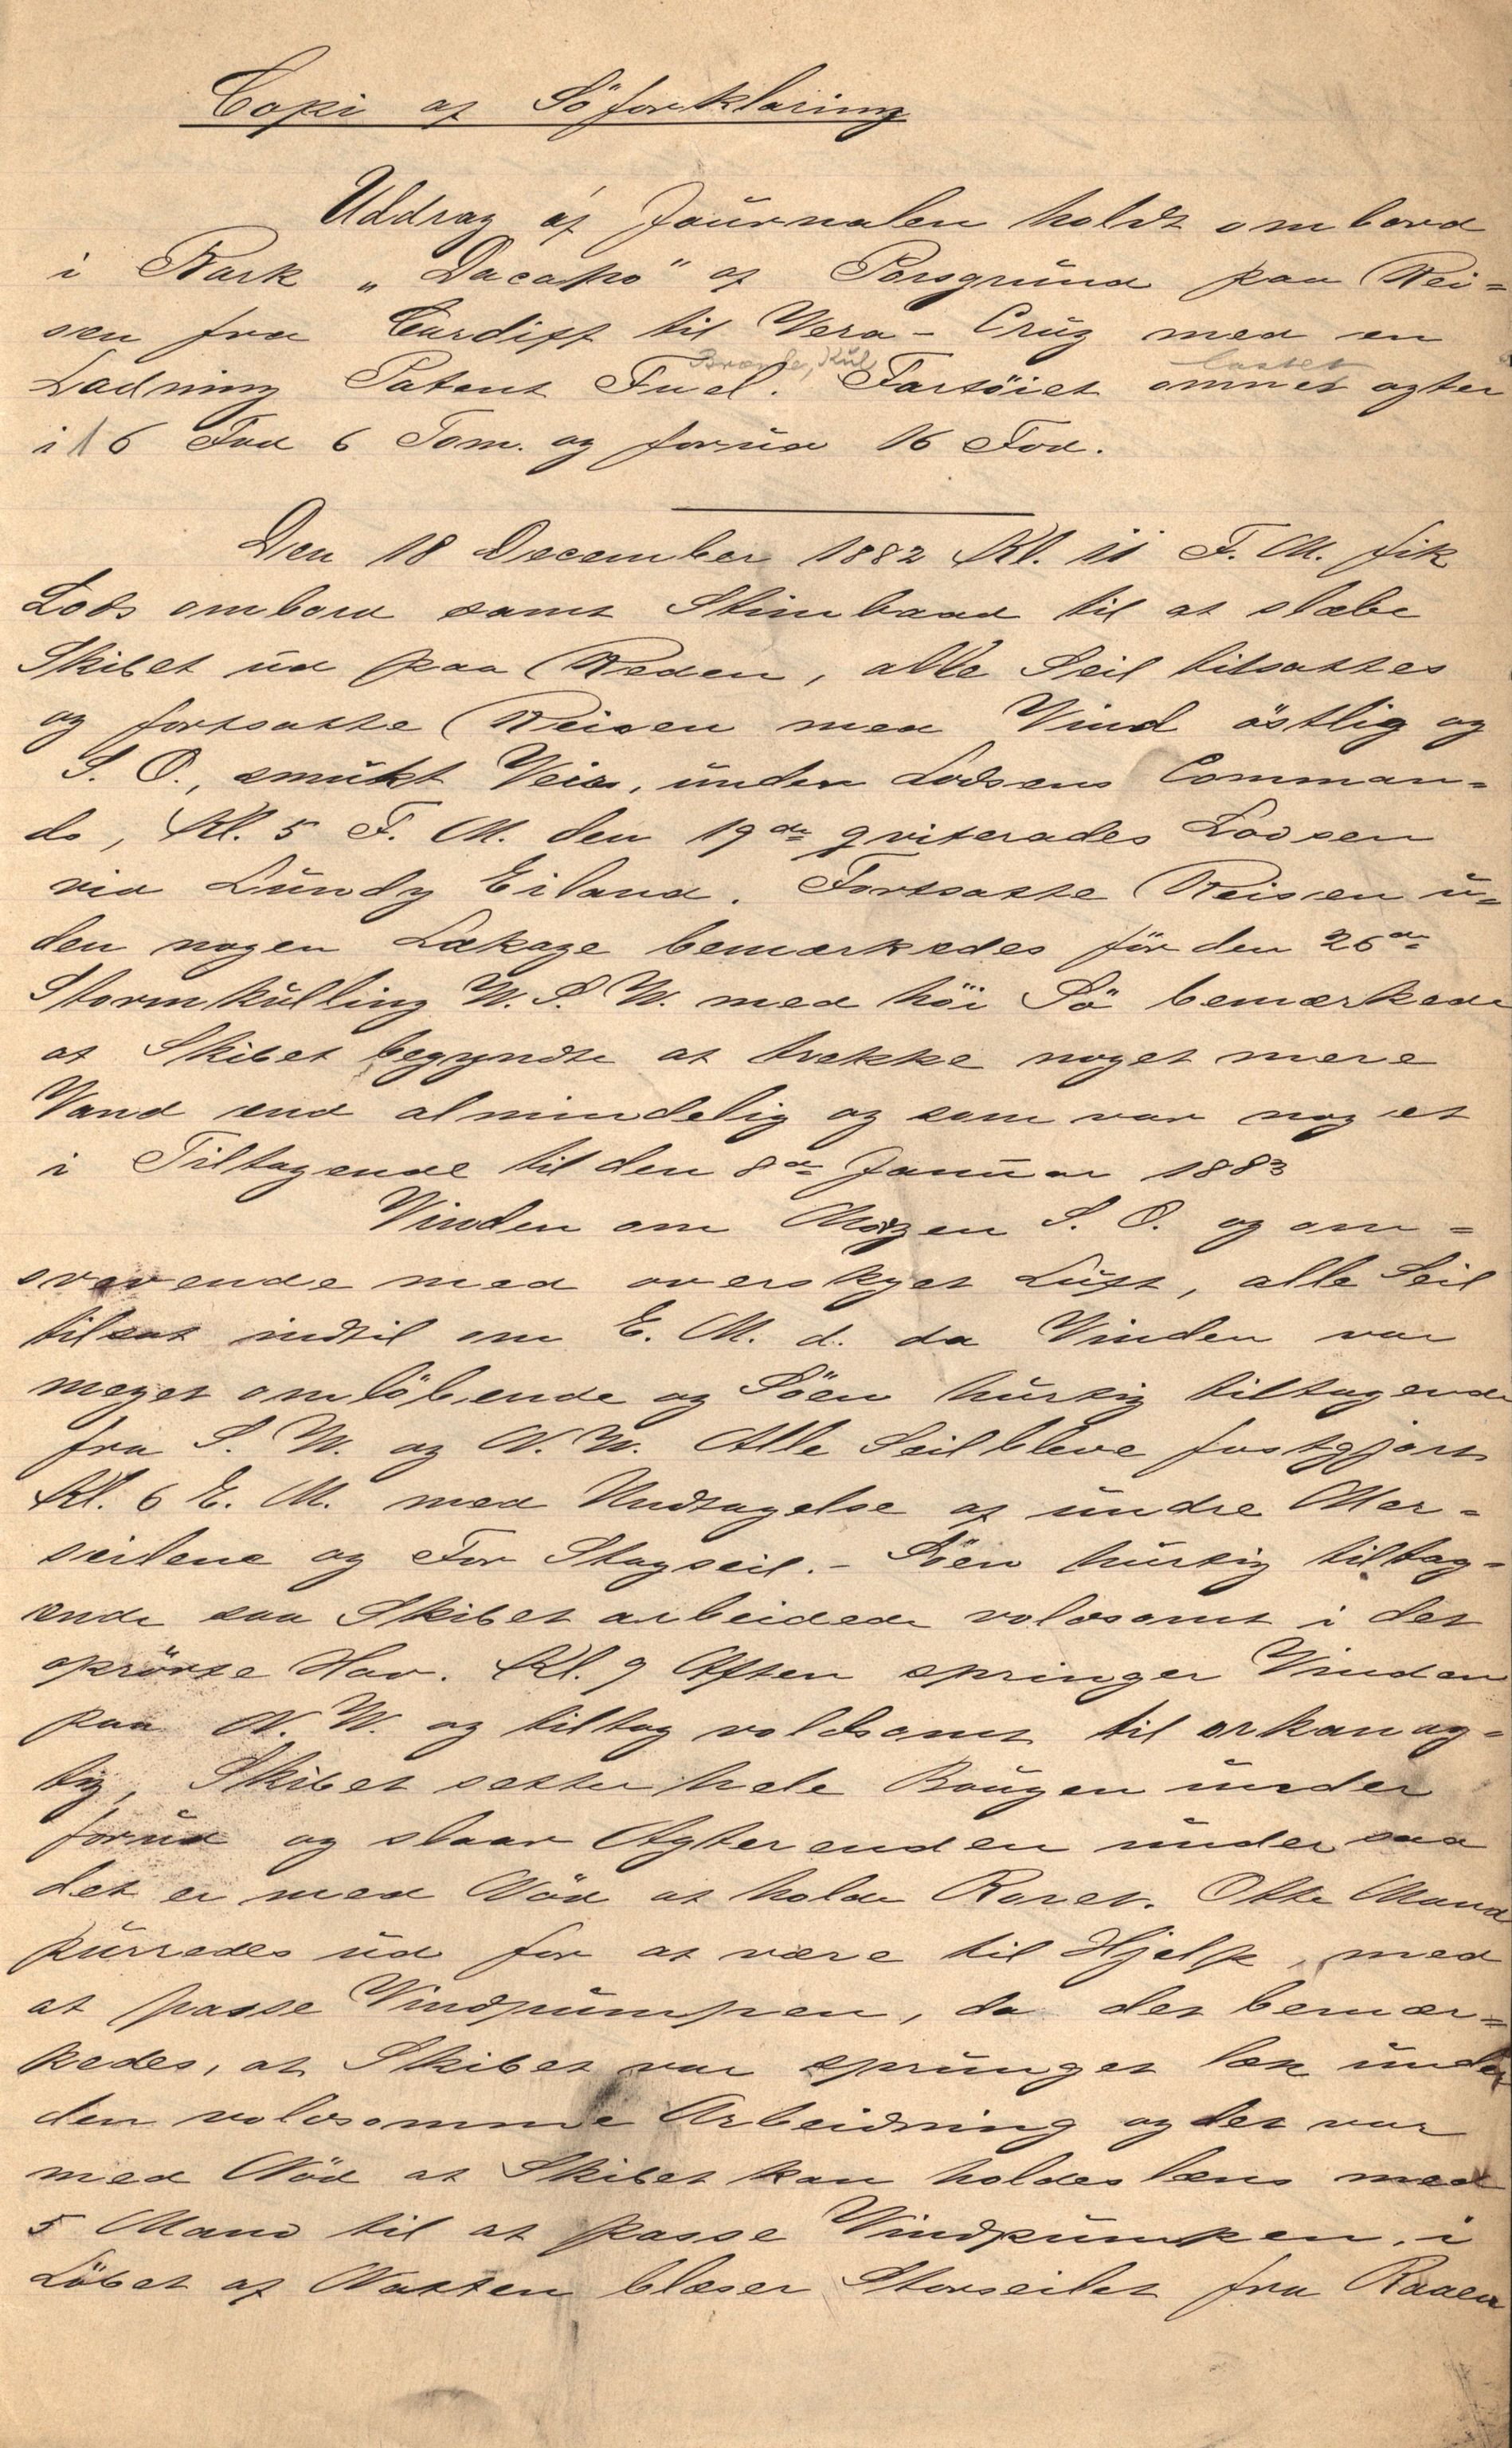 Copi af Söforklaring
Uddrag af Journalen holdt ombord
i Bark „Dacapo" af Porsgrund paa Rei=
sen fra Cardiff til Vera-Cruz med en
Brænde, Kul lastet
Ladning Patent Fuel. Fartöiet ammet agter
i 16 Fod 6 Tom. og forud 16 Fod.
Den 18 December 1882 Kl. 11 F. M. fik
Lods ombord samt Stimbaad til at slæbe
Skibet ud paa Reden, alle Seil tilsattes
og fortsatte Reisen med Vind östlig og
S. O., smukt Veir, under Lodsens Comman=
do, Kl. 5 F. M. den 19de qviterades Lodsen
vid Lundy Eiland. Fortsatte Reisen u=
den nogen Lækage bemærkedes för den 26de
Stormkulling W. S. W. med höi Sö bemærkede
at Skibet begyndte at trekke noget mere
Vand end almindelig og som var noget
i Tiltagende til den 8de Januar 1883
Vinden om Morgen S. O. og om=
svævende med overskyet Luft, alle Seil
tilsat indtil om E. M. d. da Vinden var
meget omlöbende og Söen hurtig tiltagende
fra S. W. og N. W. Alle Seil bleve fastgjort
Kl. 6 E. M. med Undtagelse af undre Mer=
seilene og For Stagseil. - Söen hurtig tiltag=
ende saa Skibet arbeidede voldsomt i det
oprörte Hav. Kl. 9 Aften springer Vinden
paa N. W. og tiltog voldsomt til orkanag=
tig, Skibet setter hele Bougen under
forud og slaar Agterenden under saa
det er med Nöd at holde Roret. Otte Mand
purredes ud for at være til Hjelp med
at passe Vindpumpen, da det bemær=
kedes, at Skibet var sprunget læk under
den voldsomme Arbeidning og det var
med Nöd at Skibet kan holdes læns med
5 Mand til at passe Vindpumpen, i
Löbet af Natten blæser Storseilet fra Raaen